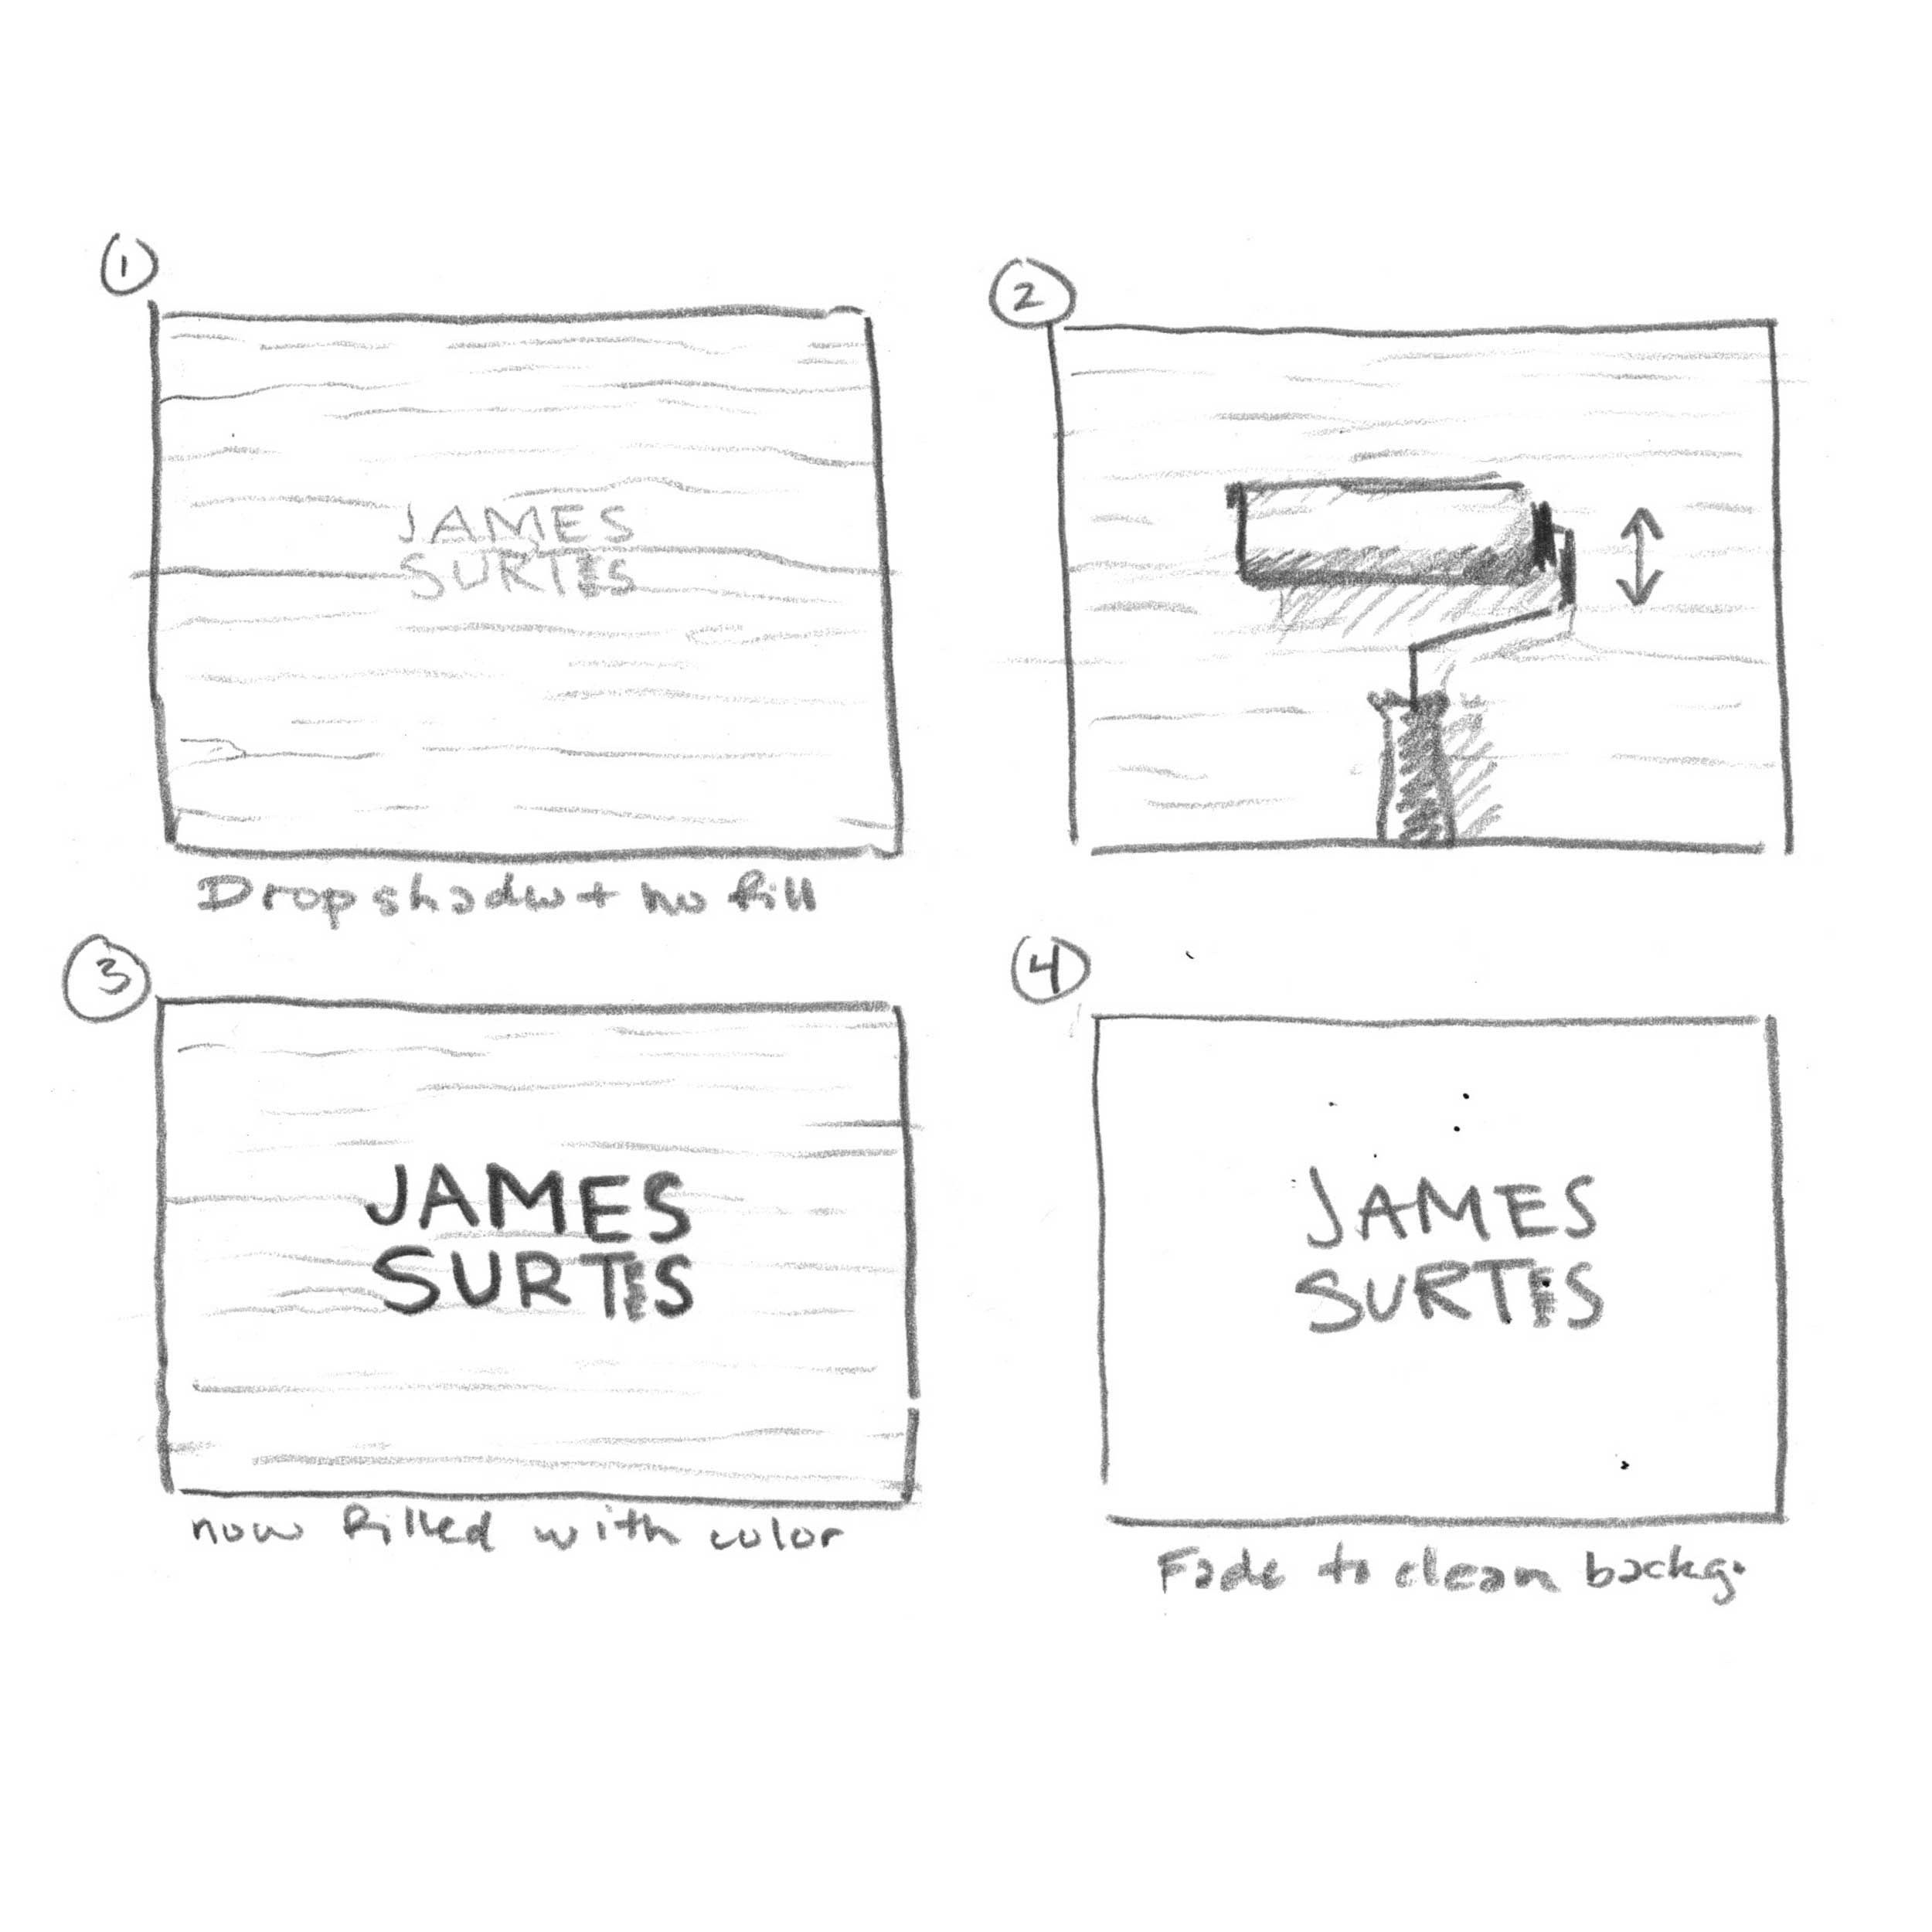 1
JAMES
SURTES
Drop shadw + no fill
2
3
JAMES
SURTES
now filled with color
4
JAMES
SURTES
Fade to clean backg.